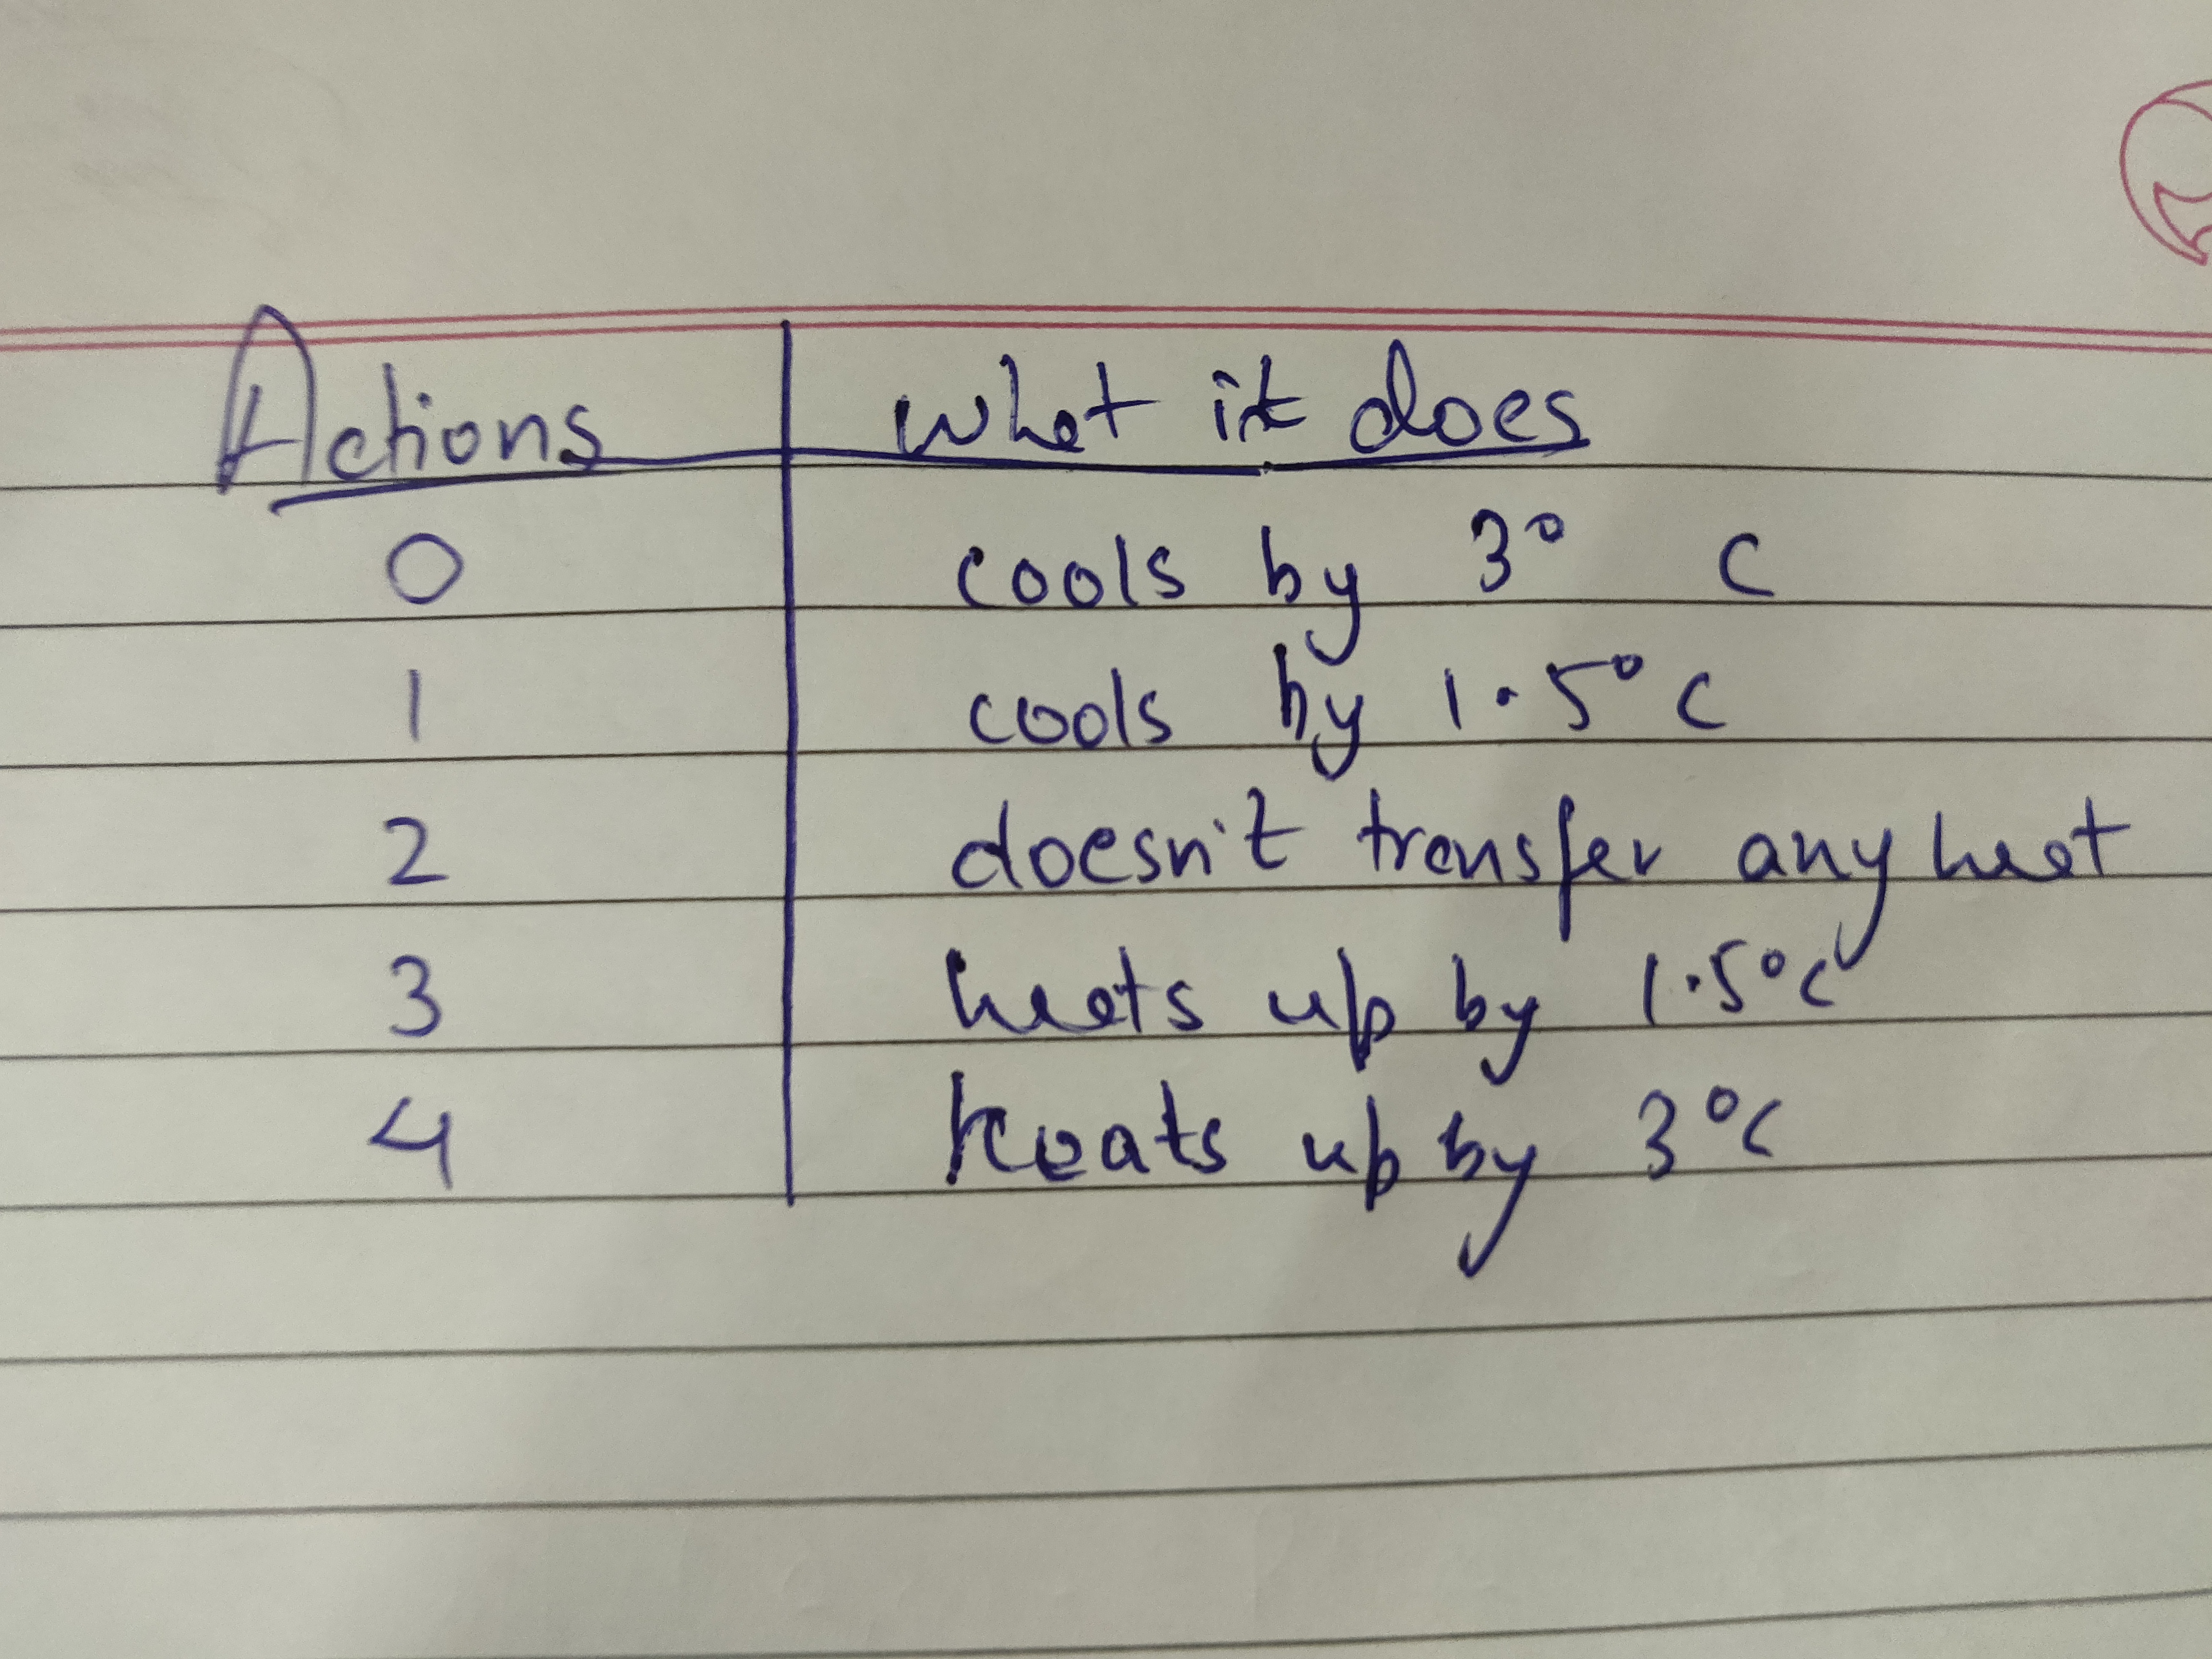 Actions what it does
0 cools by 3° C
1 cools by 1.5° C
2 doesn't transfer any heat
3 heats up by 1.5°C
4 heats up by 3°C